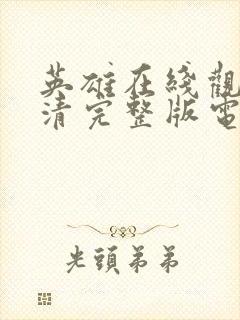 英雄在綫觀
清完整版電
光頭弟弟